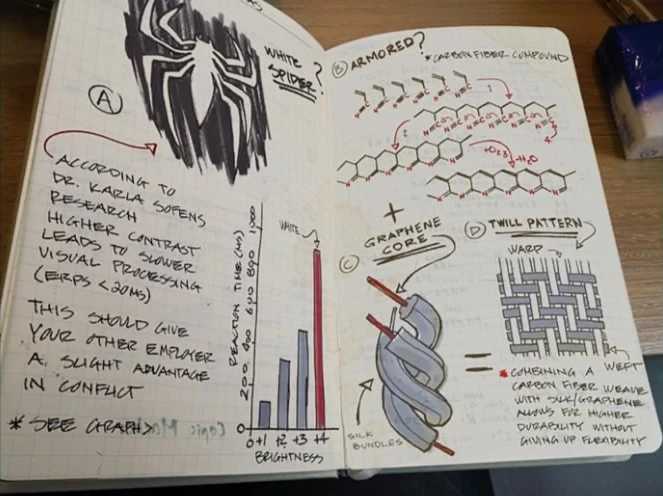 WHITE
SPIDER?
A
ACCORDING TO
DR. KARLA SOFENS
RESEARCH
HIGHER CONTRAST
LEADS TO SLOWER
VISUAL PROCESSING
(ERPS < 20MS)
THIS SHOULD GIVE
YOUR OTHER EMPLOYER
A SLIGHT ADVANTAGE
IN CONFLICT
* SEE GRAPH>
REACTION TIME (MS)
1000
800
600
400
200
0
WHITE
0 +1 +2 +3 +4
BRIGHTNESS
B ARMORED?
* CARBON FIBER COMPOUND
N≡C N≡C N≡C N≡C N≡C N≡C
-H2O
+
GRAPHENE
CORE
C
SILK
BUNDLES
=
D TWILL PATTERN
WARP
WEFT
* COMBINING A
CARBON FIBER WEAVE
WITH SILK/GRAPHENE
ALLOWS FOR HIGHER
DURABILITY WITHOUT
GIVING UP FLEXIBILITY